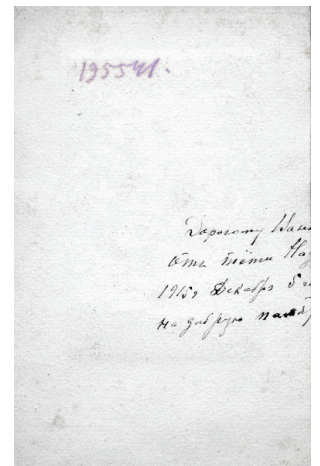 195541.
Дорогому
отъ тёти
1915 г Декабря 5
на добрую